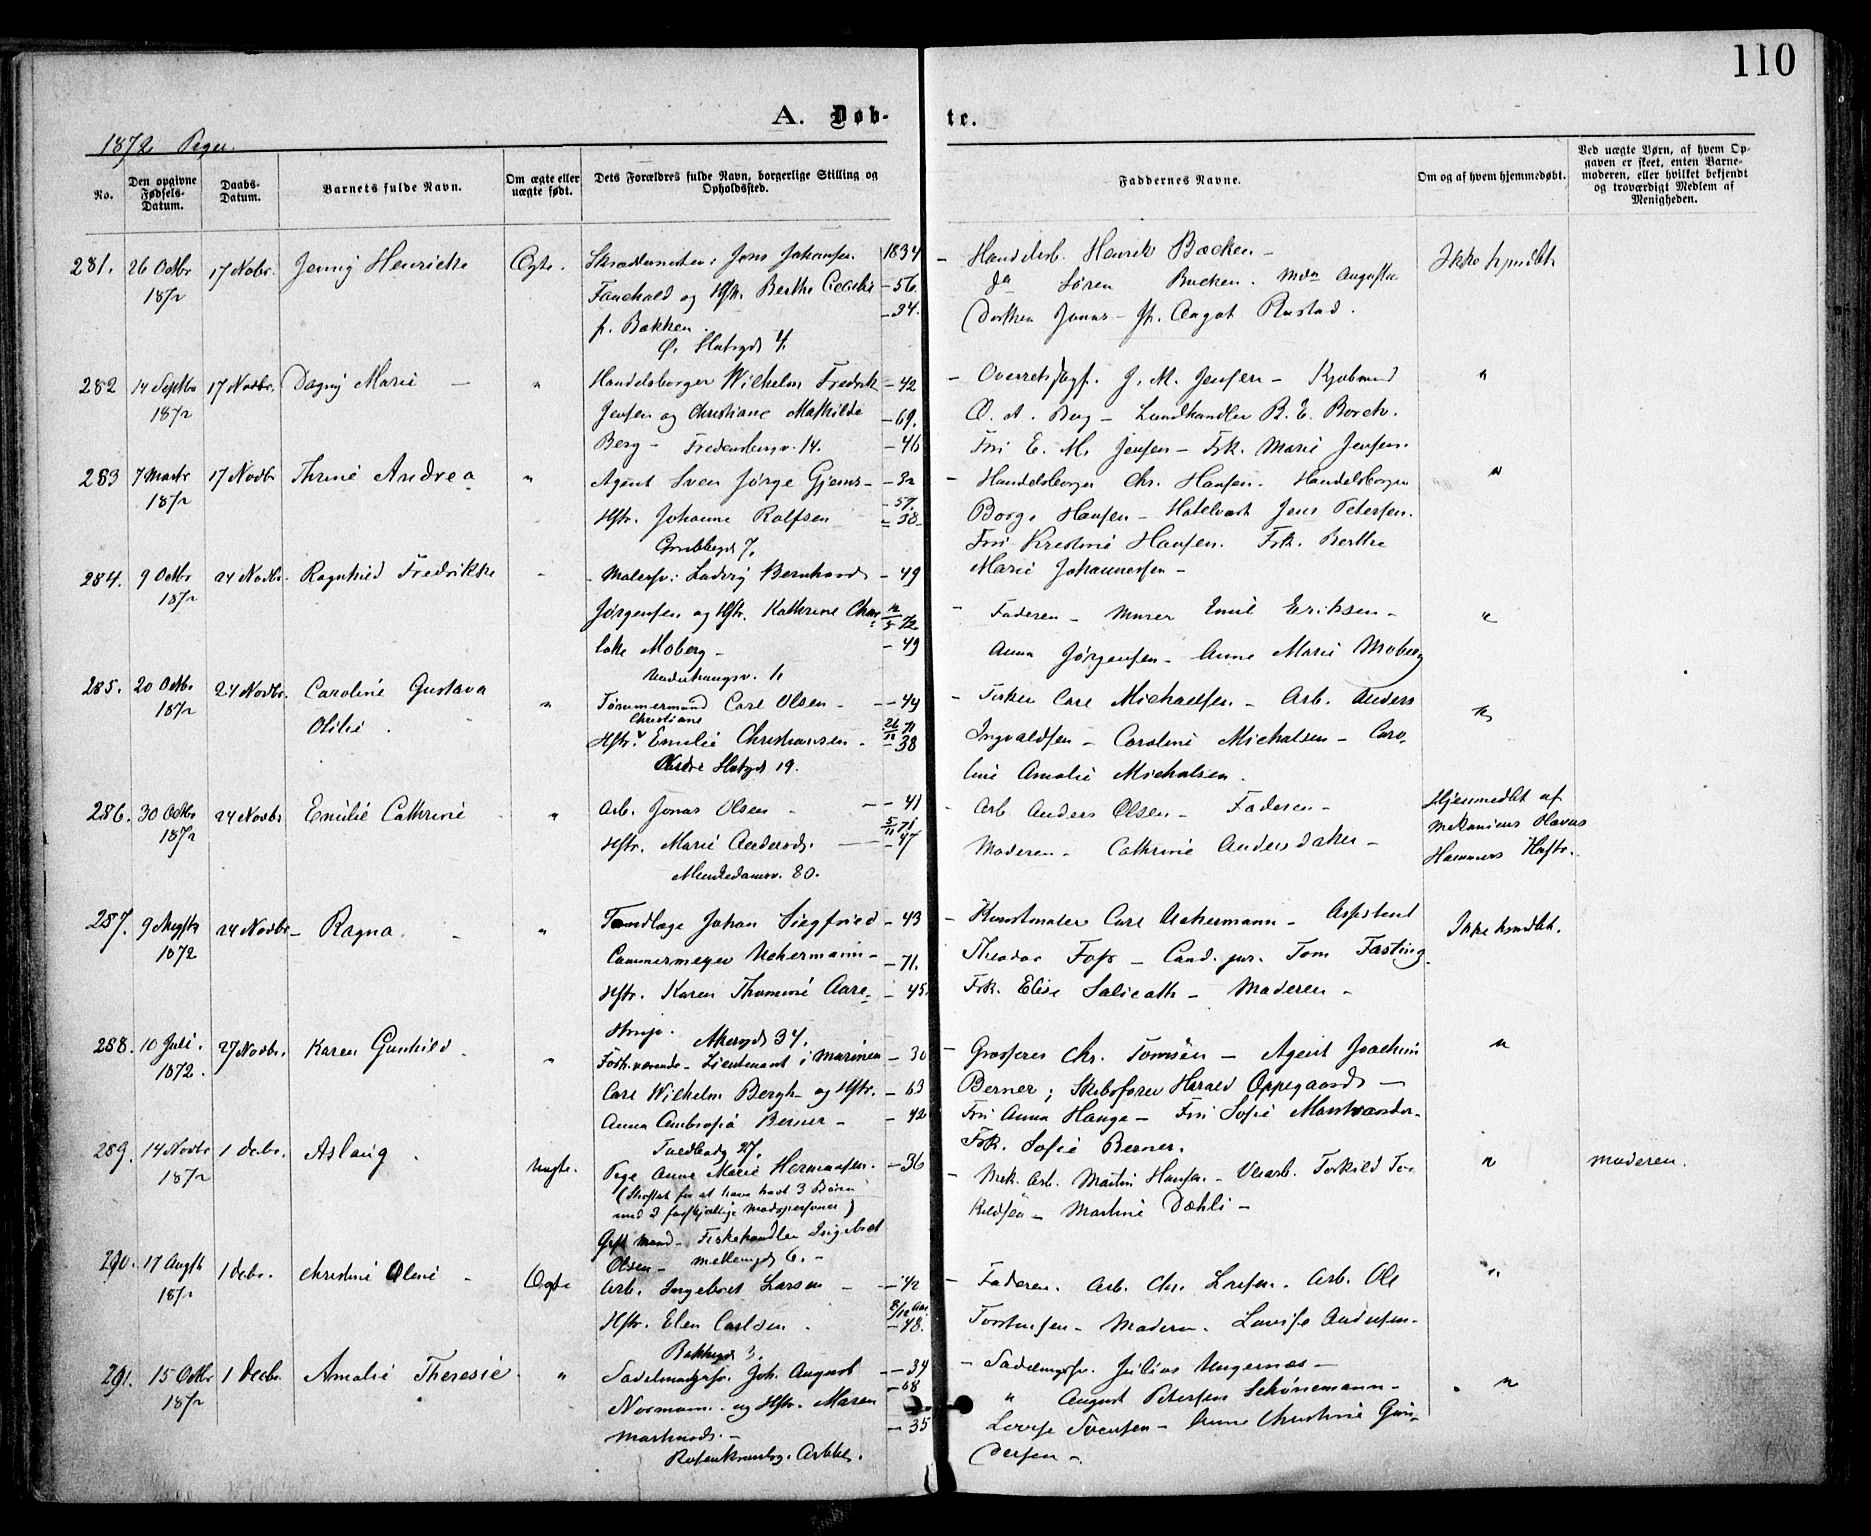 110
A. Døb-
te.
1872 Piger.
No.
Den opgivne Fødsels-Datum.
Daabs-Datum.
Barnets fulde Navn.
Om ægte eller uægte født.
Dets Forældres fulde Navn, borgerlige Stilling og Opholdssted.
Faddernes Navne.
Om og af hvem hjemmedøbt.
Ved uægte Børn, af hvem Opgaven er skeet, enten Barnemoderen, eller hvilket bekjendt og troværdigt Medlem af Menigheden.
281. 26 Octbr 1872 17 Novbr. Jenny Henrikke Ægte.
Jens Johansen 1834
og Hstr. Berthe Cecilie - 56.
f. Bakken. - 34.
Handelsb. Henrik Backen -
Søren Backen. Augusta
Dorthea Jonas - Fr. Aagot Rustad.
282 14 Septbr 1872 17 Novbr. Dagny Marie - "
Handelsborger Wilhelm Fredrik - 42
Jensen og Christiane Mathilde - 69.
Berg - Fredensborgv. 14. - 46
- Overretssagf. J. M. Jensen -
- Landhandler B. E. Borch.
Fru E. M. Jensen - Frk. Marie Jensen.
"
283 7 1872 17 Novbr Andrea "
Agent Sven Jørge Gjems - - 32
57.
Hstr. Johanne Rolfsen - 38
Grubbegd 7.
- Handelsborger Chr. Hansen. Handelsborger
Borge Hansen - Hotelvært Jens Petersen.
Fru Kristine Hansen. Frk. Berthe
Marie Johannessen -
"
284. 9 Octbr 1872 24 Novbr. Ragnhild Fredrikke "
- Malersv. Ludvig Bernhard - 49
Jørgensen og Hstr. Kathrine Char- 72
lotte Moberg - - 49
- Faderen - Murer Emil Eriksen -
Anna Jørgensen - Anne Marie Moberg
"
285. 20 Octbr 1872 24 Novbr. Caroline Gustava
Otilie. "
Tømmermand Carl Olsen - - 44
Christiane
Hstr. Emilie Christiansen - 26/12 71 - 38
Slotsgd 19.
- Carl Michaelsen - Arb. Anders
Ingvaldsen - Caroline Michalsen - Caro-
line Amalie Michalsen.
"
286. 30 Octbr 1872 24 Novbr Emilie Cathrine "
Arb. Jonas Olsen - - - 41
5/11 71
Hstr. Marie Andersd. - - 47
Munkedamsv. 80.
- Arb. Anders Olsen - Faderen -
Moderen - Cathrine Andersdatter -
Hjemmedbt af
Mekanicus
Hammers Hustr.
287. 9 1872 24 Novbr - Ragna. "
Tandlæge Johan Siegfried - 43
Cammermeyer Uchermann - - 71.
Hstr. Karen Thomine Aare- - 45.
strup. Akersgd. 34.
- Kunstmaler Carl Uchermann - Assistent
Theodor Foss - Cand. jur. Tom Fasting.
Frk. Elise Salicath - Moderen -
Ikke hjmdbt.
288. 10 Juli. 1872. 27 Novbr. Karen Gunhild. "
Forhværende - Lieutenant i Marinen - 30
Carl Wilhelm Bergh - og Hstr. - 63
Anna Ambrosia Berner - - 42
Toldbodg 27.
- Grosserer Chr. Tønsen - Agent Joachim
Berner; Skibsfører Harald Oppegaard -
Fru Anna Hauge - Fru Sofie Marstrander.
Frk. Sofie Berner.
"
289. 14 Novbr 1872 1 Decbr. Aslaug. Uægte.
Pige Anne Marie Hermansen. - 36
(Straffet for at have havt 3 Børn
med 2 forskjellige Mandspersoner)
Gift Mand - Fiskehandler Ingebret
Olsen - Mellemgd 6. -
- Mek. Arb. Martin Hansen. - Torkild Tor-
kildsen - Martine Dæhli -
"
Moderen.
290. 17 Augst 1872 1 Decbr. Christine Oline - Ægte
Arb. Ingebret Larsen - - 42
Hstr. Elen Carlsen. - 48.
Bakkegd 3.
- Faderen. Arb. Chr. Larsen. Arb. Ole
Torstensen - Moderen. Lovise Andersen -
"
291. 15 Octbr 1872 1 Decbr. Amalie Theresie. "
Sadelmagersv. Joh. August - 34
- 68
Normann. og Hstr. Maren
Martinsd. - - 35
- Sadelmgsv. Julius Ungernæs -
" August Petersen Schønemann -
Lovise Svensen - Anne Christine Gun-
dersen -
"